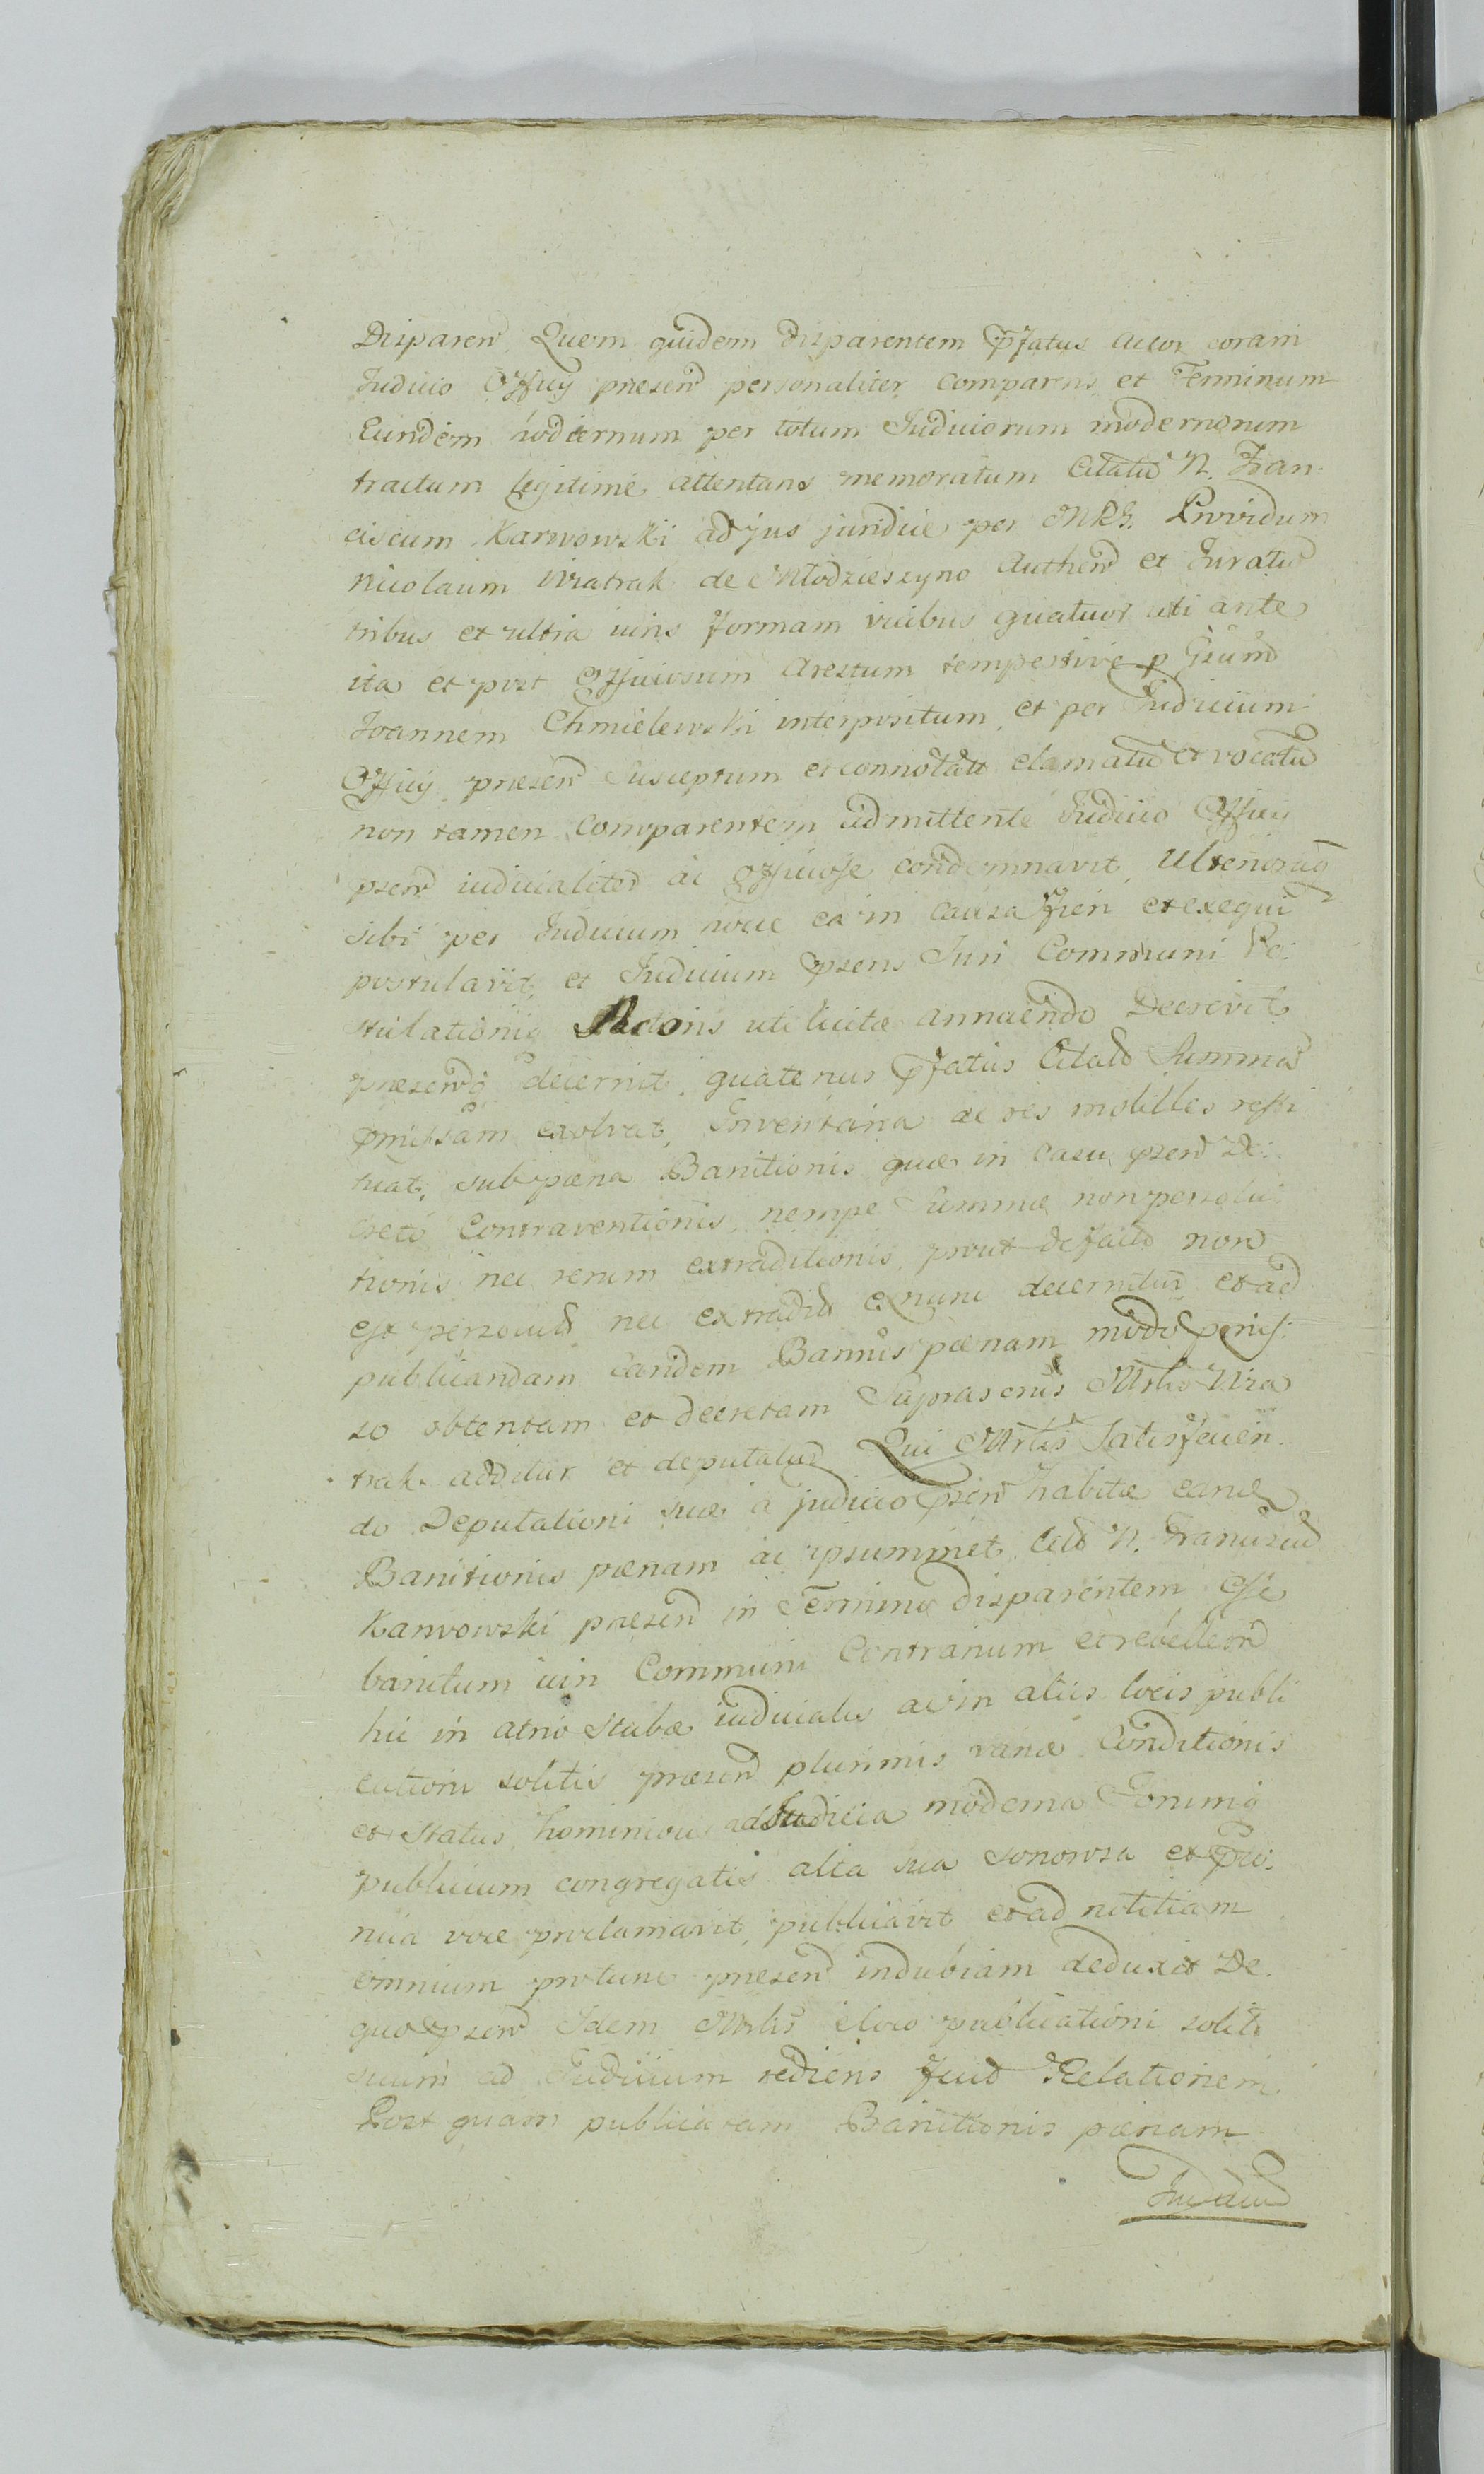 Disparen Quem quidem disparentem Pfatus Actor coram
Judicio Officij presen personaliter comparens et Terminum
Eundem hodiernum per totum Judiciorum modernorum
tractum legitime attentans memoratum Citatu N. Fran-
ciscum Karwowski ad jus juridice per MRG. Providum
Nicolaum Wratrak de Młodzieszyno Authen et Juratu
tribus et ultra iuris formam vicibus quatuor uti ante
ita et post Officiosum Arestum tempestive p Gsum
Joannem Chmielewski interpositum et per Judicium
Officij presen Susceptum et connotatu clamatu et vocatu
non tamen comparentem admittente Judicio Officij
psen iudicialiter ac Officiose condemnavit. Ulterioraq
sibi per Judicium hocce ea in causa fieri et exequi
postulavit, et Judicium psens Juri Communi Po:
stulationiq Actoris uti licitæ annuendo Decrevit
presensq decernit, quatenus Pfatus Citatus Summa
Pmissam exolvat, Inventaria ac res mobiles resti
tuat, sub pæna Banitionis quæ in casu psen De:
creto Contraventionis, nempe Summæ non persolu
tionis nec rerum extraditionis, prout de facto non
est persolut nec extradit ex nunc decernitur et ad
publicandam eandem Bannis pænam modo pmis:
so obtentam et decretam Suprascrius Mrlis Wra
trak additur et deputatur Qui Mrlis Satisfacien
do Deputationi suæ a judicio psen habitæ eand
Banitionis pænam ac ipsummet Citt N. Franciscu
Karwowski presen in Termino disparentem esse
banitum iuri Communi Contrarium et rebellem
hic in atrio Stubæ iudicialis ac in aliis locis publi
cationi solitis presen plurimis variæ Conditionis
et status hominibus ad Judicia moderna Forumq
publicum congregatis alta sua sonorosa et Pro.
nua voce proclamavit, publicavit et ad notitiam
omnium protunc presen indubiam deduxit De
quo psen Idem Mrlis e loco publicationi solito
suum ad Judicium rediens fecit Relationem.
Post quam publicatam Banitionis pænam
Judicium